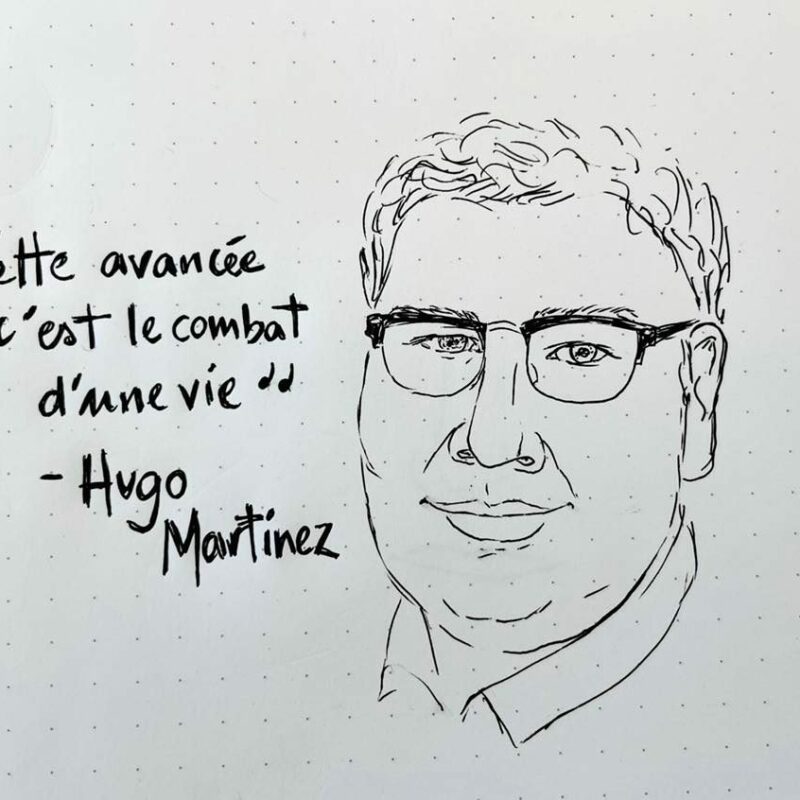 ette avancée
c'est le combat
d'une vie "
- Hugo
Martinez